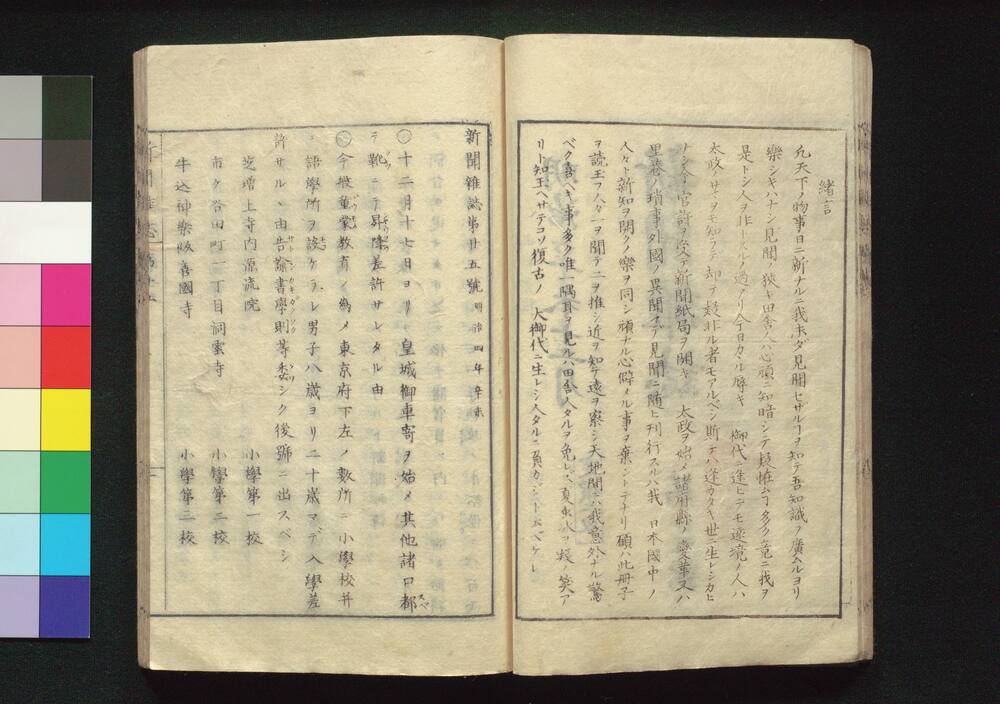 緒言
凡天下ノ物事日ニ新ナルニ我未ダ見聞セザルヿヲ知テ吾知識ヲ廣ムルヨリ
樂シキハナシ見聞ノ狹キ田舎人ハ心頑ニ知暗シテ疑惟ムヿ多ク竟ニ我ヲ
是トシ人ヲ非トスルノ過アリ今日カヽル辱キ 御代ニ逢ヒニモ邊境ノ人ハ
太政ノサマヲモ知ラデ却テ疑非ル者モアルベシ斯テハ逢ガタキ世ニ生レシカヒ
ナシ今ハ官許ヲ受テ新聞紙局ヲ開キ 太政ヲ始メ諸府縣ノ變革又ハ
里巷ノ瑣事外國ノ異聞マデ見聞ニ隨ヒ刊行スルハ我 日本國中ノ
人々ト新知ヲ開クノ樂ヲ同シ頑ナル心僻メル事ヲ棄ントテナリ碩ハ此冊子
ヲ讀玉フ人々一ヲ聞テ二ヲ推シ近ヲ知テ遠ヲ察シ天地間ニハ我意外ナル驚
ベク喜ベキ事多ク唯一隅耳ヲ見ルハ田舎人タルヲ免レズ夏虫氷ヲ疑ノ笑ア
リト知玉ヘサテコソ復古ノ 大御代ニ生レシ人タルニ負カジト云ベケレ
新聞雜誌第廿五號 明治四年辛未
〇十二月十七日ヨリ 皇城御車寄ヲ始メ其他諸口都スベ
テ靴グツニテ昇降ノボリオリ差許サレタル由
〇今般童蒙教育ノ為メ東京府下左ノ數所ニ小學校并
ニ語學所ヲ設ケラレ男子八歳ヨリ二十歳マデ入學差
許サルヽ由告諭書學則等委シク後號ニ出スベシ
芝増上寺内源流院 小學第一校
市ケ谷田町一丁目洞雲寺 小學第二校
牛込神樂阪善國寺 小學第三校